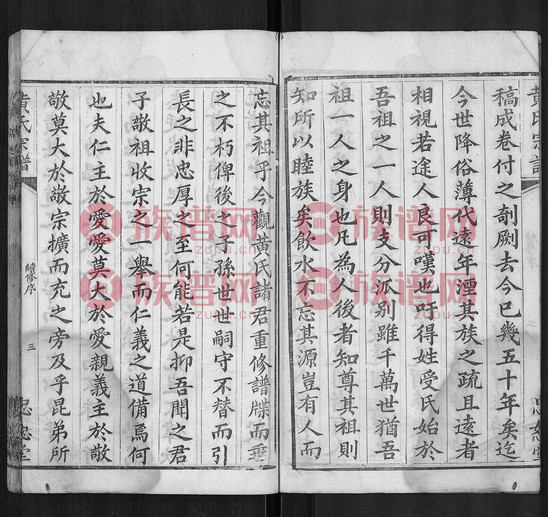 黃氏宗譜
稿成卷付之剞劂去今已幾五十年矣迄
今世降俗薄代遠年湮其族之疏且遠者
相視若途人良可嘆也吁得姓受氏始於
吾祖之一人則支分派別雖千萬世猶吾
祖一人之身也凡為人後者知尊其祖則
知所以睦族矣飲水不忘其源豈有人而
忘其祖乎今觀黃氏諸君重修譜牒而垂
之不朽俾後之子孫世世嗣守不替而引
長之非忠厚之至何能若是抑吾聞之君
子敬祖收宗之一舉而仁義之道備焉何
也夫仁主於愛愛莫大於愛親義主於敬
敬莫大於敬宗擴而充之旁及乎昆弟所
黃氏宗譜
續修序
三
族谱网
zupu.cn
族谱网
zupu.cn
族谱网
zupu.cn
族谱网
zupu.cn